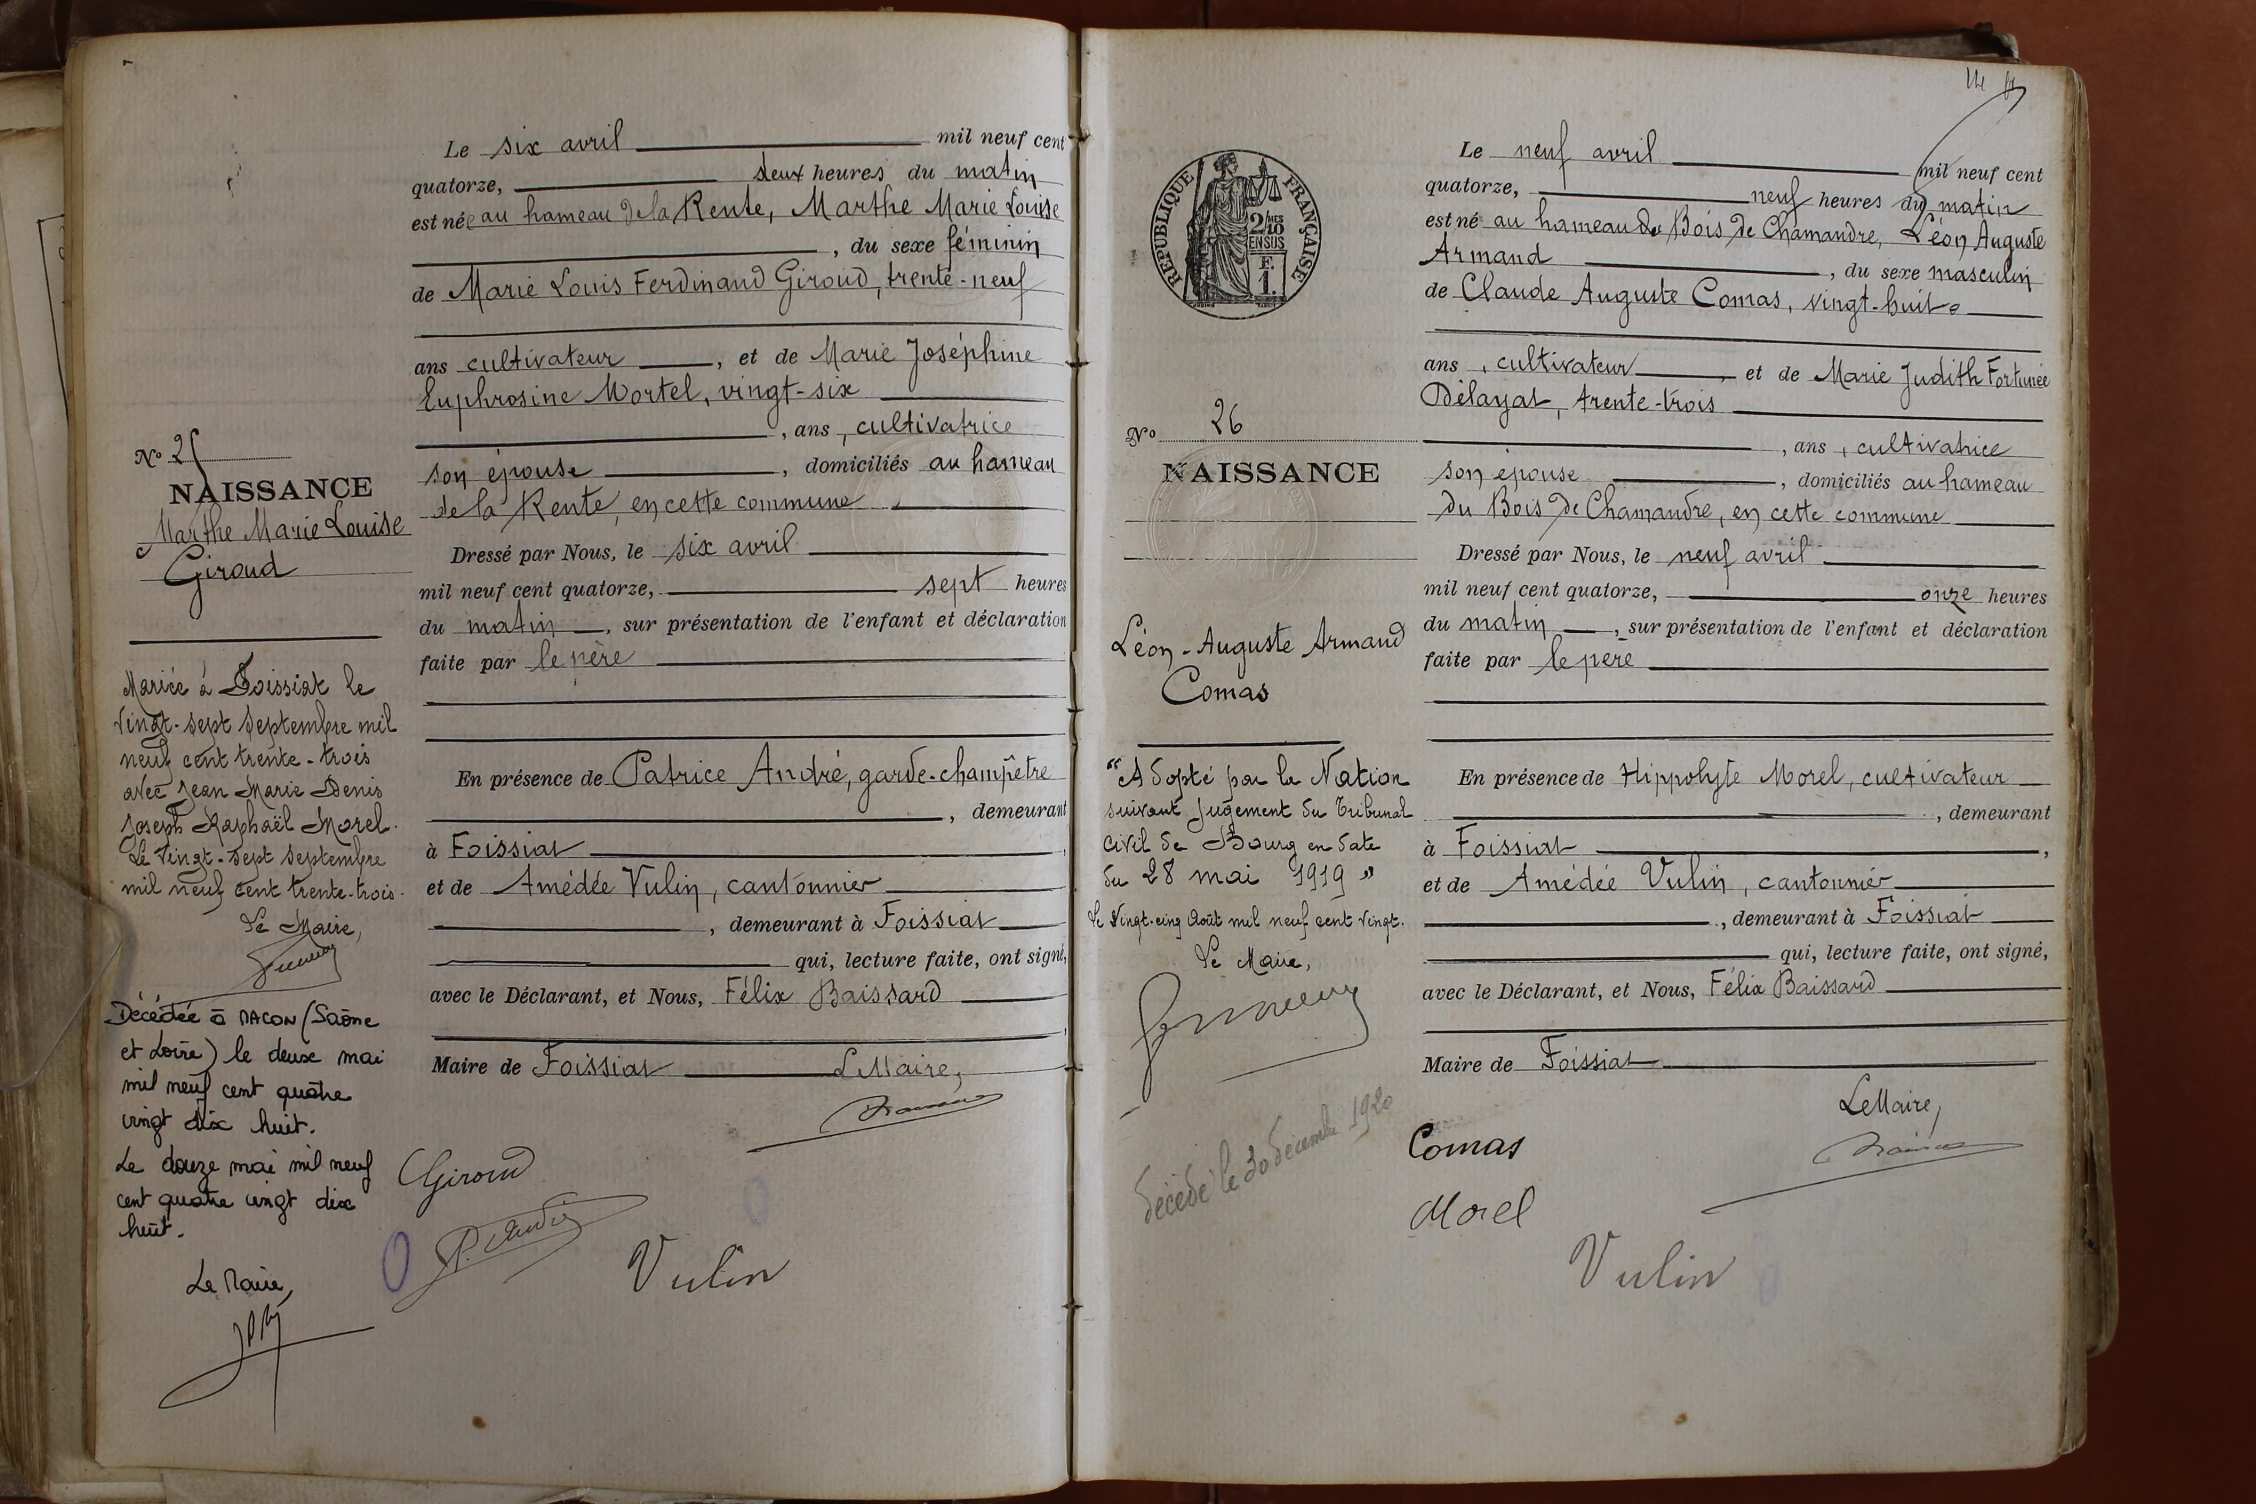 Le six avril mil neuf cent
quatorze, deux heures du matin
est née au hameau de la Rente, Marthe Marie Louise
, du sexe féminin
de Marie Louis Ferdinand Giroud, trente-neuf
ans cultivateur, et de Marie Joséphine
Euphrosine Mortel, vingt-six
, ans, cultivatrice
son épouse, domiciliés au hameau
de la Rente, en cette commune
Dressé par Nous, le six avril
mil neuf cent quatorze, sept heures
du matin, sur présentation de l'enfant et déclaration
faite par le père
En présence de Patrice André, garde-champêtre
, demeurant
à Foissiat,
et de Amédée Vulin, cantonnier
, demeurant à Foissiat
qui, lecture faite, ont signé,
avec le Déclarant, et Nous, Félix Baissard
Maire de Foissiat Le Maire,
Giroud
P. André
Vulin
No 25
NAISSANCE
Marthe Marie Louise
Giroud
Mariée à Foissiat le
vingt-sept septembre mil
neuf cent trente-trois
avec Jean Marie Denis
Joseph Raphaël Morel.
Le vingt-sept septembre
mil neuf cent trente-trois.
Le Maire,
Décédée à MACON (Saône
et Loire) le deux mai
mil neuf cent quatre
vingt dix huit.
Le douze mai mil neuf
cent quatre vingt dix
huit.
Le Maire,
14
RÉPUBLIQUE FRANÇAISE
2/10MES
EN SUS
F.
1.
No 26
NAISSANCE
Léon-Auguste Armand
Comas
"Adopté par la Nation
suivant jugement du Tribunal
civil de Bourg en date
du 28 mai 1919"
Le vingt-cinq août mil neuf cent vingt.
Le Maire,
décédé le 30 décembre 1920
Le neuf avril mil neuf cent
quatorze, neuf heures du matin
est né au hameau du Bois de Chamandre, Léon Auguste
Armand, du sexe masculin
de Claude Auguste Comas, vingt-huit
ans, cultivateur, et de Marie Judith Fortunée
Délayat, trente-trois
, ans, cultivatrice
son épouse, domiciliés au hameau
du Bois de Chamandre, en cette commune
Dressé par Nous, le neuf avril
mil neuf cent quatorze, onze heures
du matin, sur présentation de l'enfant et déclaration
faite par le père
En présence de Hippolyte Morel, cultivateur
, demeurant
à Foissiat,
et de Amédée Vulin, cantonnier
, demeurant à Foissiat
qui, lecture faite, ont signé,
avec le Déclarant, et Nous, Félix Baissard
Maire de Foissiat
Le Maire,
Comas
Morel
Vulin